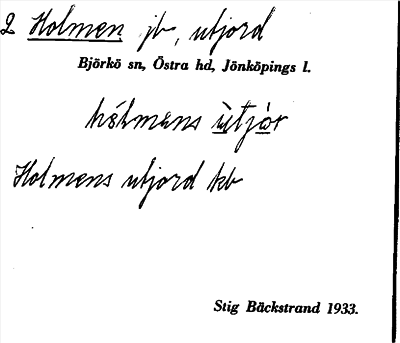 2 Holmen jb, utjord
Björkö sn, Östra hd, Jönköpings l.
hólmens ùtjor
Holmens utjord kb
Stig Bäckstrand 1933.